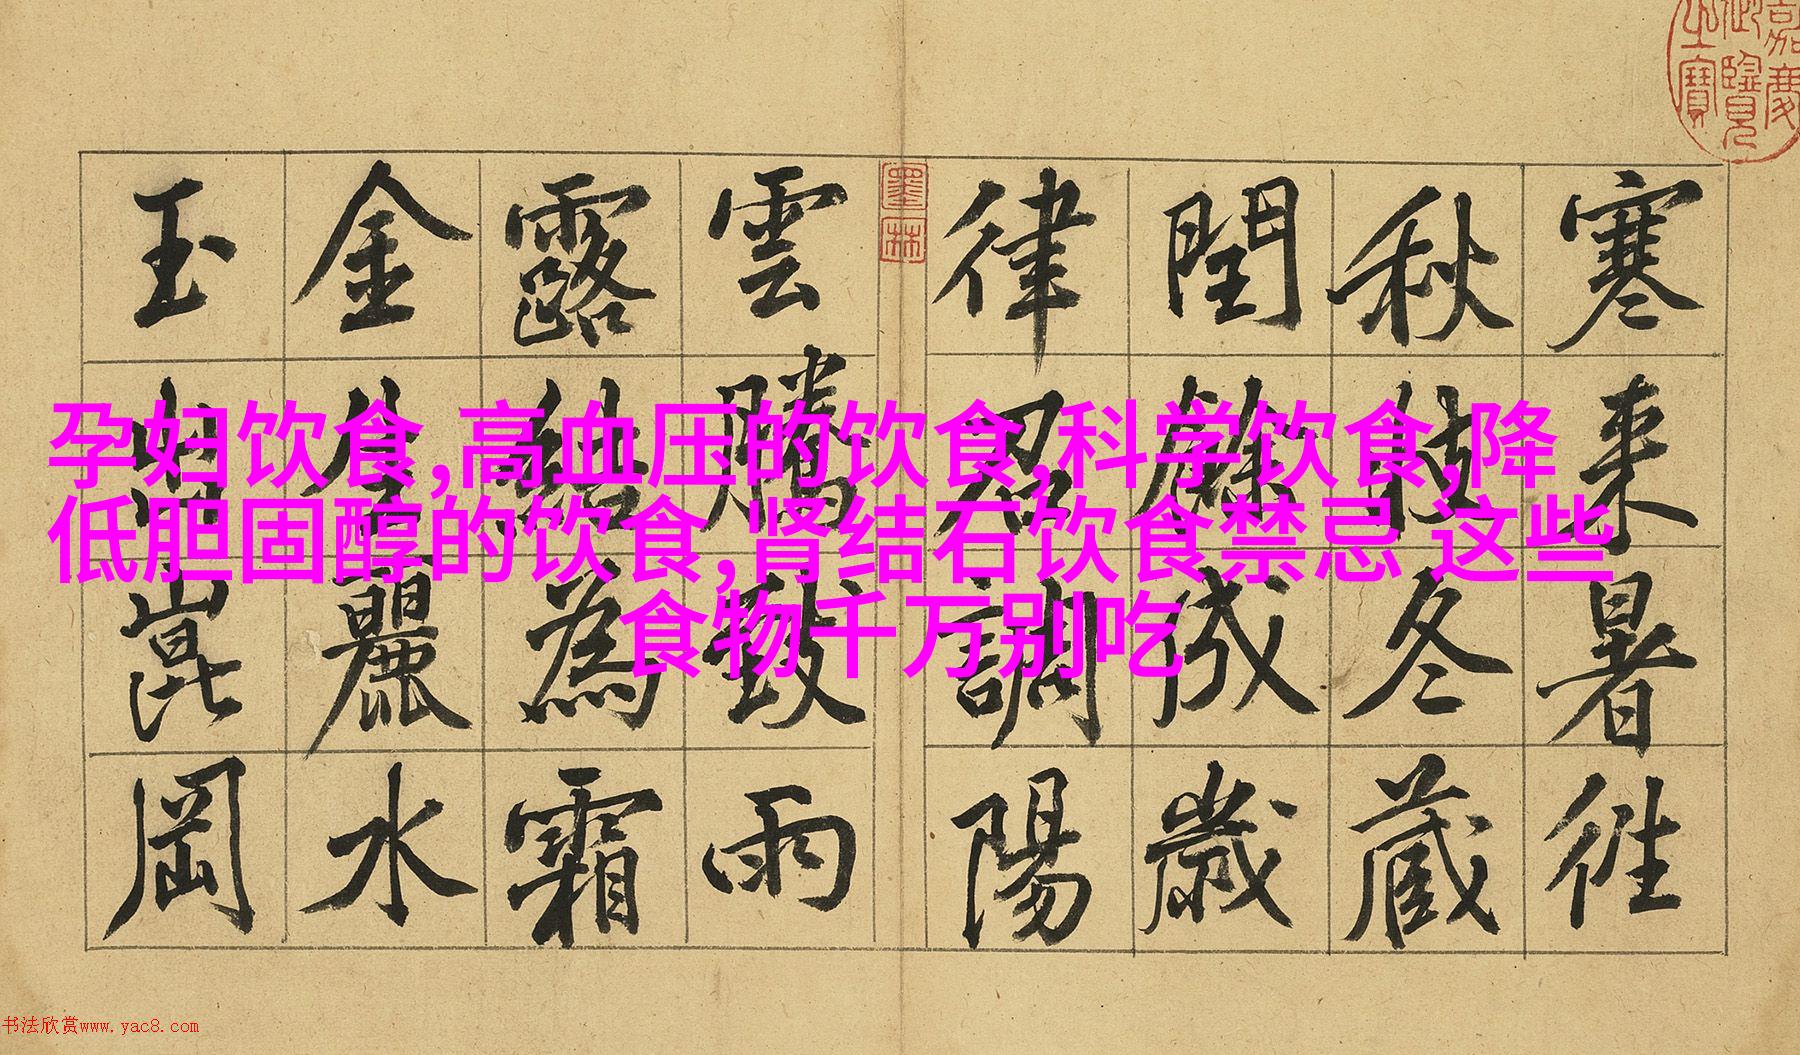 孕妇饮食,高血压的饮食,科学饮食,降
低胆固醇的饮食,肾结石饮食禁忌 这些
食物千万别吃
寒来暑往
秋收冬藏
閏餘成歲
律召調陽
雲騰致雨
露結為霜
金生麗水
玉出崑岡
嘉慶御覽之寶
墨林
书法欣赏www.yac8.com